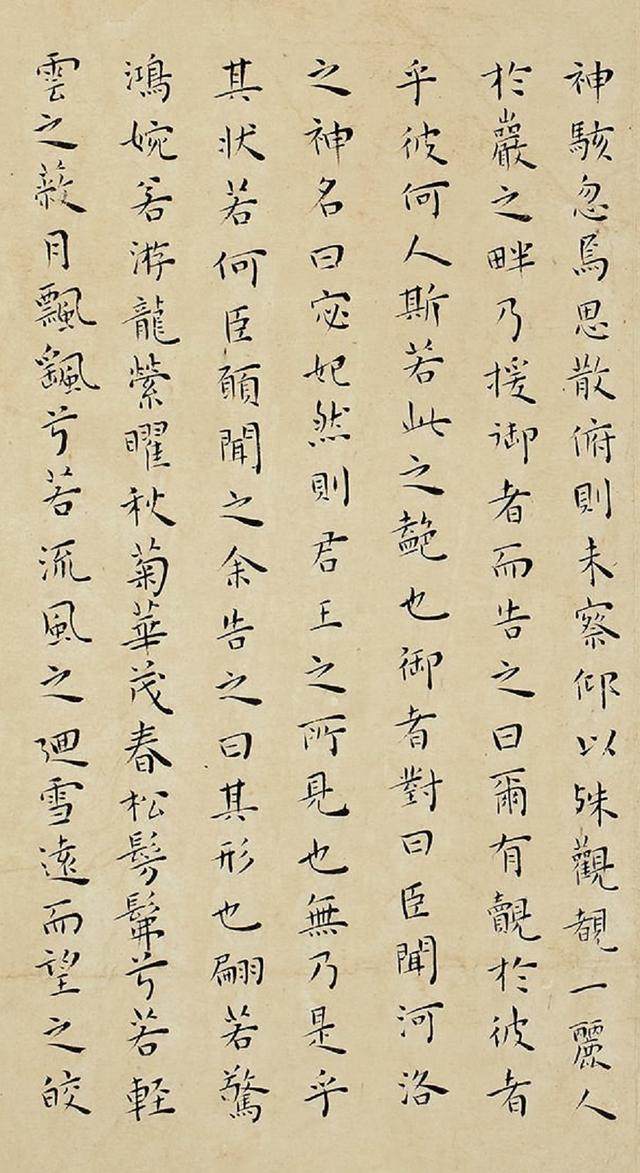 神駭忽焉思散俯則未察仰以殊觀覩一麗人
於巖之畔乃援御者而告之曰爾有觌於彼者
乎彼何人斯若此之豔也御者對曰臣聞河洛
之神名曰宓妃然則君王之所見也無乃是乎
其狀若何臣願聞之余告之曰其形也翩若驚
鴻婉若游龍榮曜秋菊華茂春松髣髴兮若輕
雲之蔽月飄飖兮若流風之迴雪遠而望之皎